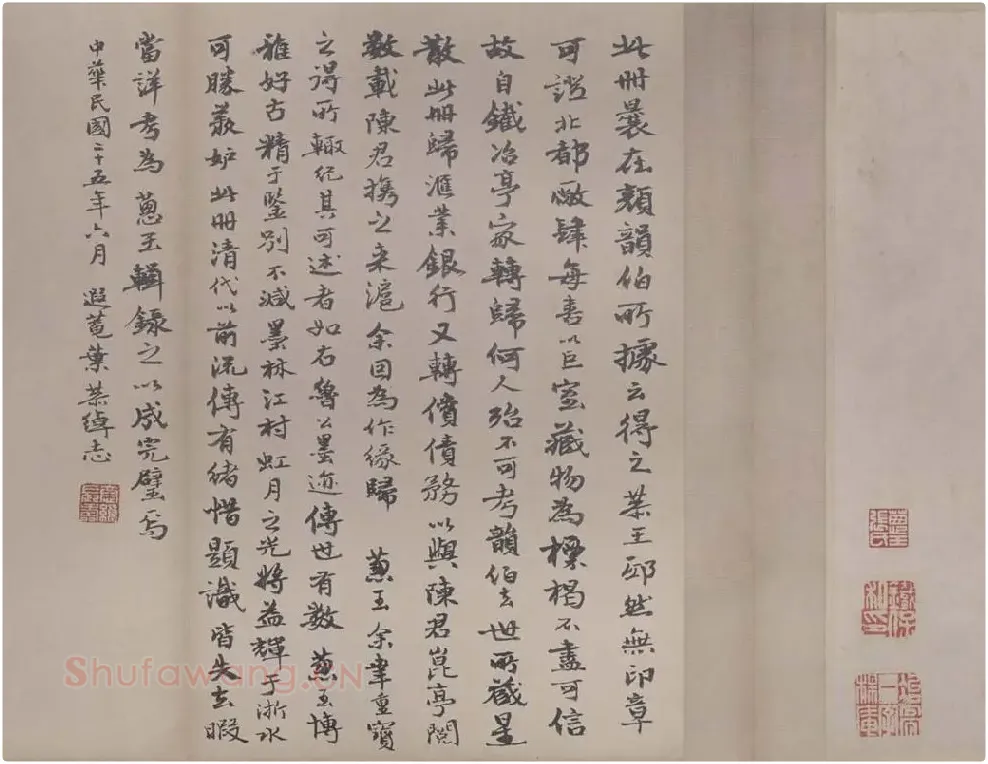 此冊曩在顏韻伯所據云得之某王邸然無印章
可證北都廠肆每喜以巨室藏物為標榜不盡可信
故自鐵冶亭家轉歸何人殆不可考韻伯去世所藏星
散此冊歸滙業銀行又轉償債務以與陳君崑亭閱
數載陳君攜之来滬余因為作緣歸 蔥玉余幸重寶
之得所輙紀其可述者如右魯公墨迹傳世有數蔥玉博
雅好古精于鑒別不減墨林江村虹月之光將益輝于浙水
可勝羨妒此冊清代以前流傳有緒惜題識皆失去暇
當詳考為蔥玉輯錄之以成完璧焉
中華民國二十五年六月 遐菴葉恭綽志
Shufawang.CN